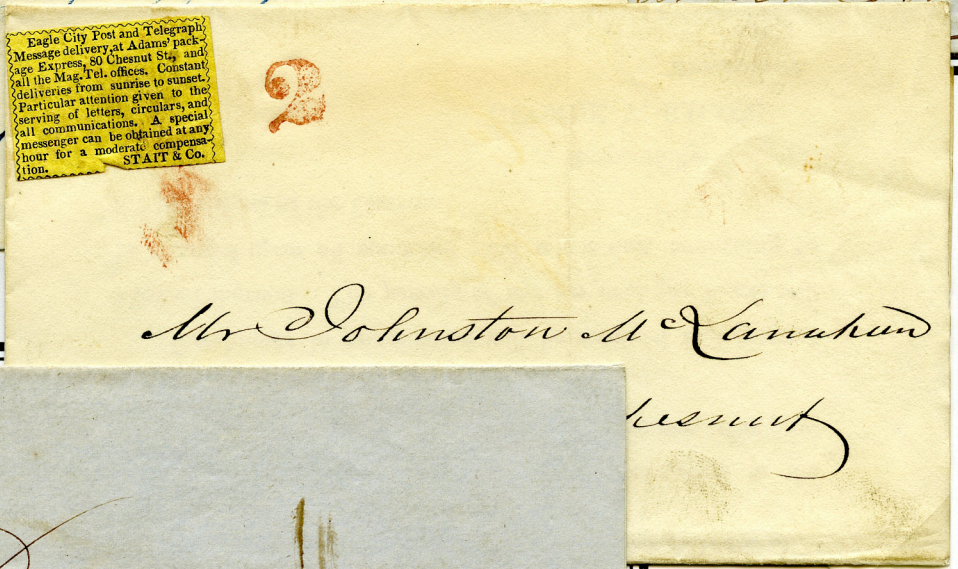 Eagle City Post and Telegraph
Message delivery, at Adams' pack-
age Express, 80 Chesnut St., and
all the Mag. Tel. offices. Constant
deliveries from sunrise to sunset.
Particular attention given to the
serving of letters, circulars, and
all communications. A special
messenger can be obtained at any
hour for a moderate compensa-
tion. STAIT & Co.
2
Mr Johnston McLanahan
hesnut